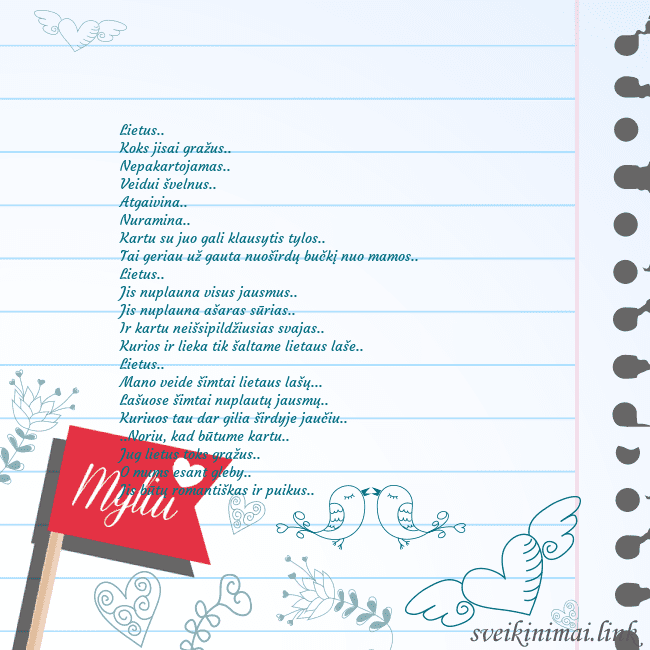 Lietus..
Koks jisai gražus..
Nepakartojamas..
Veidui švelnus..
Atgaivina..
Nuramina..
Kartu su juo gali klausytis tylos..
Tai geriau už gauta nuoširdų bučkį nuo mamos..
Lietus..
Jis nuplauna visus jausmus..
Jis nuplauna ašaras sūrias..
Ir kartu neišsipildžiusias svajas..
Kurios ir lieka tik šaltame lietaus laše..
Lietus..
Mano veide šimtai lietaus lašų...
Lašuose šimtai nuplautų jausmų..
Kuriuos tau dar gilia širdyje jaučiu..
..Noriu, kad būtume kartu..
Jug lietus toks gražus..
O mums esant gleby..
Jis būtų romantiškas ir puikus..
Myliu
sveikinimai.link